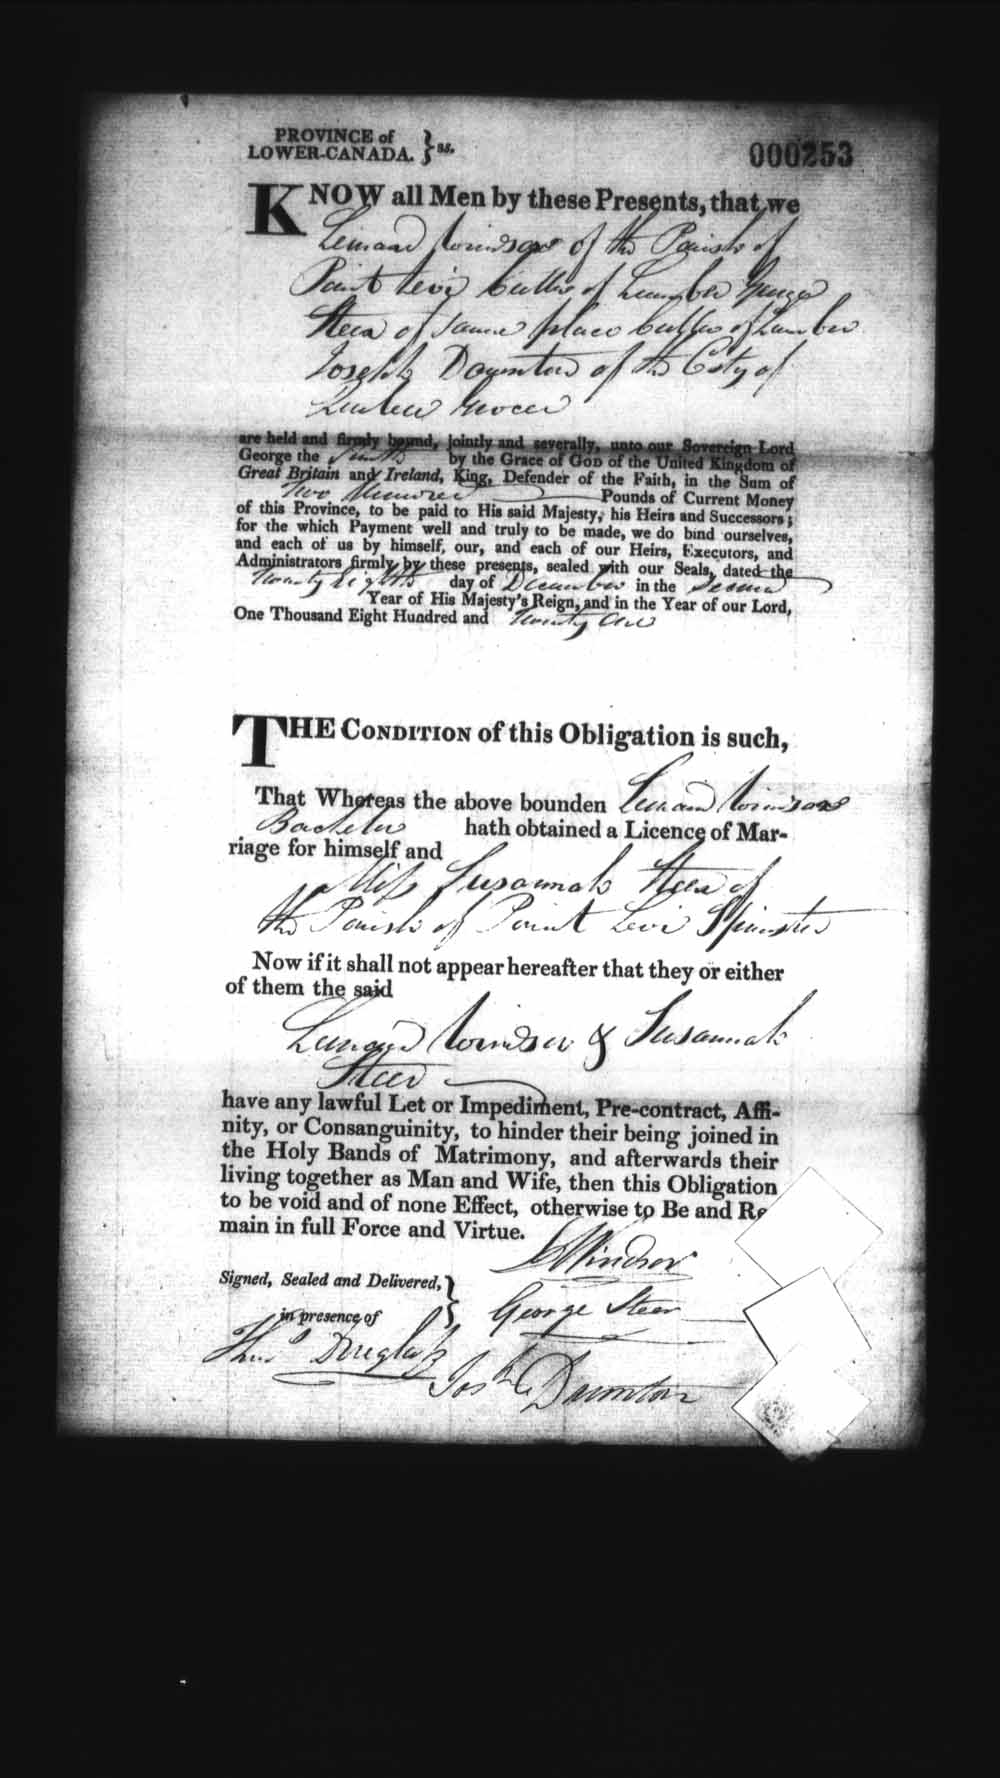 PROVINCE of
LOWER-CANADA. } ss.
000253
KNOW all Men by these Presents, that we
Lenard Windsor of the Parish of
Point Levi Culler of Lumber George
Steer of same place Culler of Lumber
Joseph Daunton of the City of
Quebec Grocer
are held and firmly bound, jointly and severally, unto our Sovereign Lord
George the Fourth by the Grace of GOD of the United Kingdom of
Great Britain and Ireland, King, Defender of the Faith, in the Sum of
Two Hundred Pounds of Current Money
of this Province, to be paid to His said Majesty, his Heirs and Successors;
for the which Payment well and truly to be made, we do bind ourselves,
and each of us by himself, our, and each of our Heirs, Executors, and
Administrators firmly by these presents, sealed with our Seals, dated the
Twenty Eighth day of December in the Second
Year of His Majesty's Reign, and in the Year of our Lord,
One Thousand Eight Hundred and Twenty One
THE CONDITION of this Obligation is such,
That Whereas the above bounden Lenard Windsor
Bachelor hath obtained a Licence of Mar-
riage for himself and
Miss Susannah Steer of
the Parish of Point Levi Spinster
Now if it shall not appear hereafter that they or either
of them the said
Lenard Windsor & Susannah
Steer
have any lawful Let or Impediment, Pre-contract, Affi-
nity, or Consanguinity, to hinder their being joined in
the Holy Bands of Matrimony, and afterwards their
living together as Man and Wife, then this Obligation
to be void and of none Effect, otherwise to Be and Re
main in full Force and Virtue.
L Windsor
Signed, Sealed and Delivered, }
George Steer
in presence of
Thos Douglass
Josh Daunton